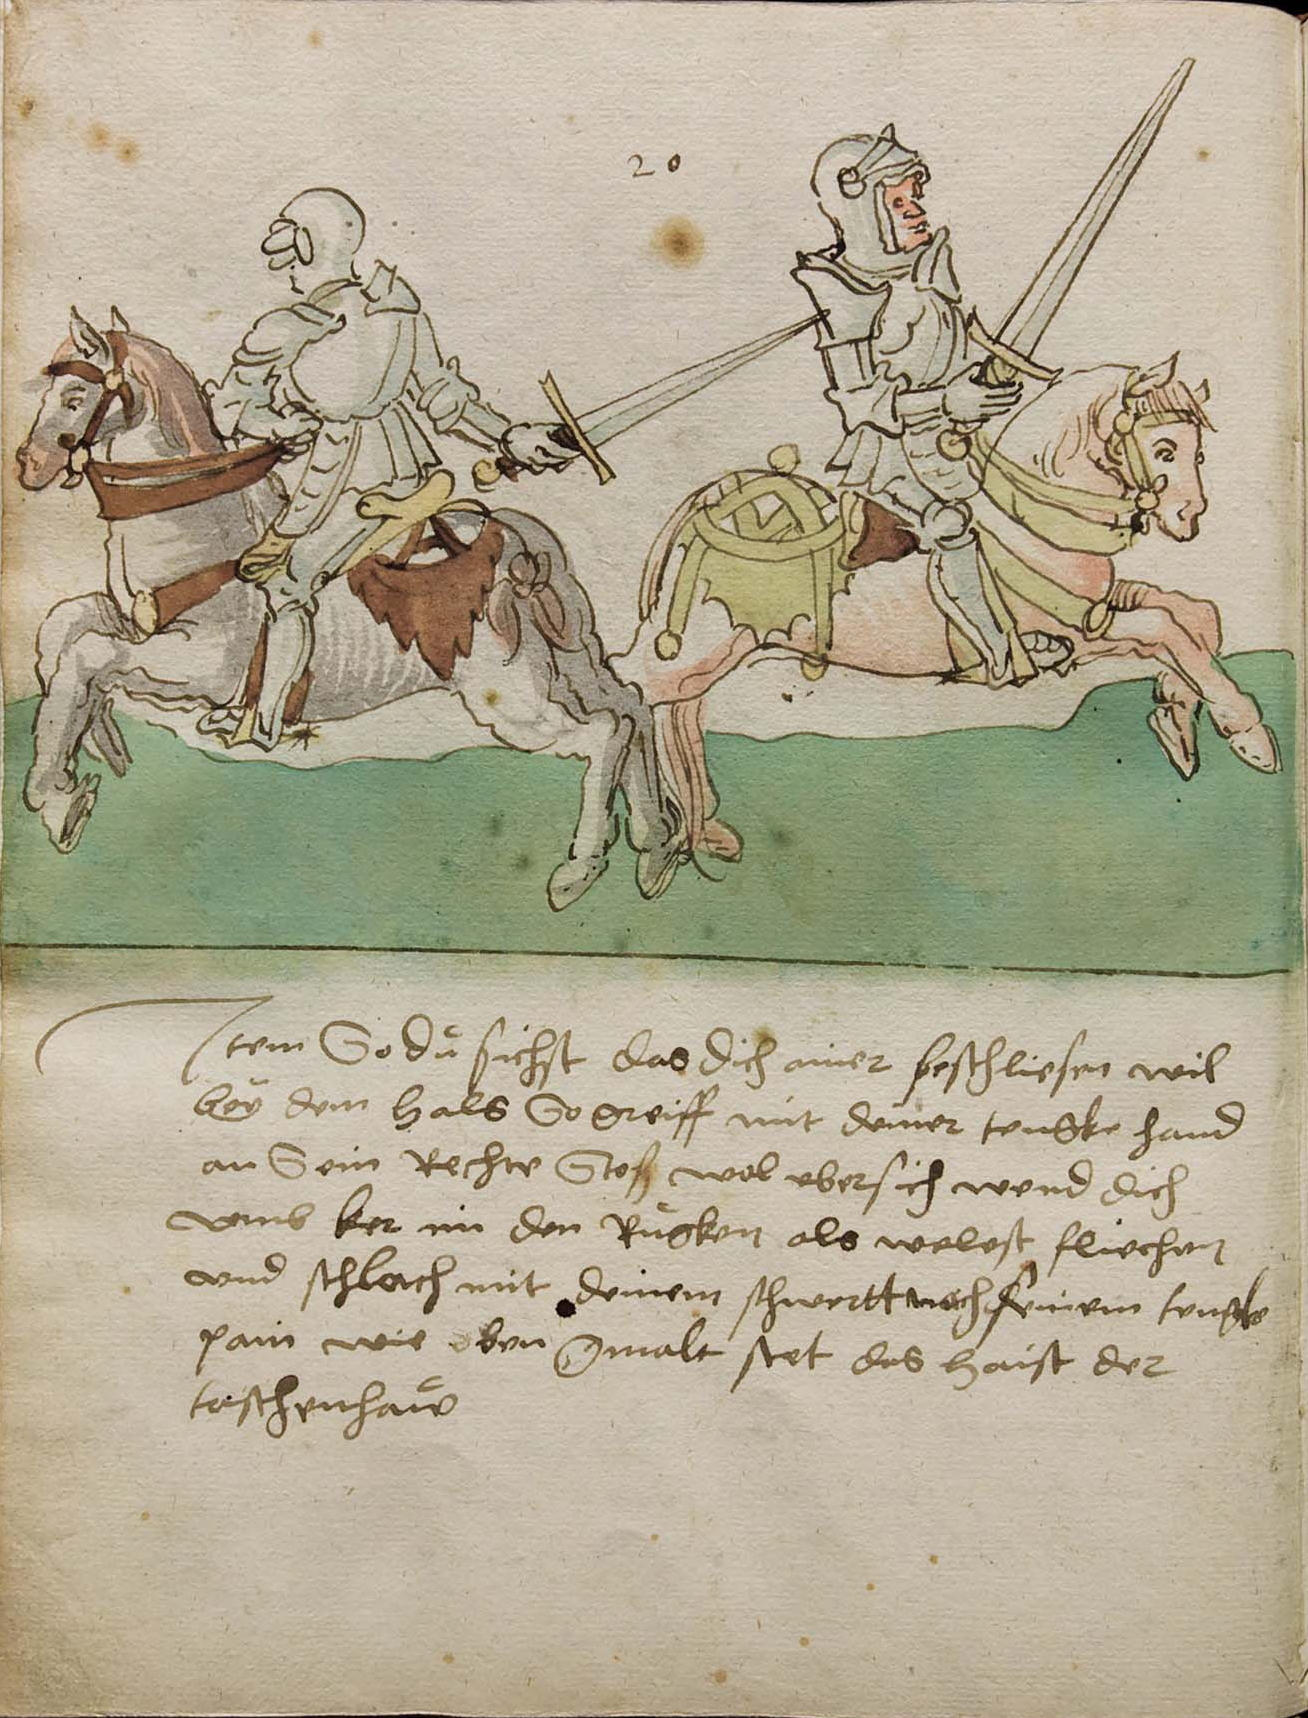 20
Item So dů sichst das dich ainer beschliesen wil
beÿ dem hals So greiff mit deiner tengke hand
an Sein Rechte Stoß wol vbersich wend dich
vmb ker im den Růgken als welest fliechen
vnd schlach mit deinem schwertt nach seinem tengke
pain wie oben gmalt stet das haist der
taschenhaw